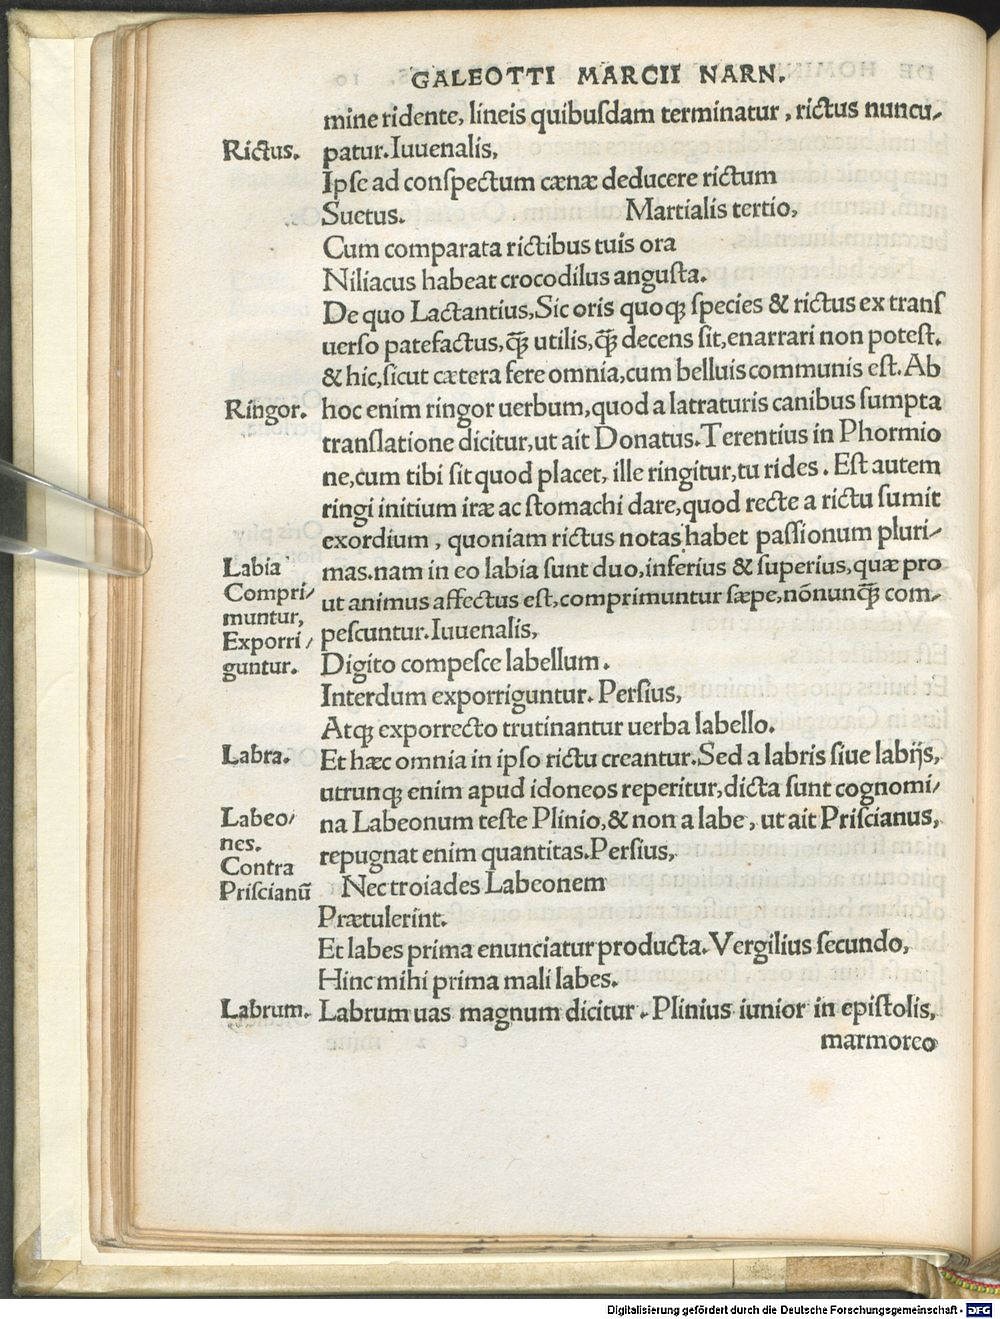 GALEOTTI MARCII NARN.
mine ridente, lineis quibuſdam terminatur, rictus nuncu/
Rictus. patur. Iuuenalis,
Ipſe ad conſpectum cænæ deducere rictum
Suetus. Martialis tertio,
Cum comparata rictibus tuis ora
Niliacus habeat crocodilus anguſta.
De quo Lactantius, Sic oris quoqꝫ ſpecies & rictus ex tranſ
uerſo patefactus, q̃ꝫ utilis, q̃ꝫ decens ſit, enarrari non poteſt.
& hic, ſicut cætera fere omnia, cum belluis communis eſt. Ab
Ringor. hoc enim ringor uerbum, quod a latraturis canibus ſumpta
tranſlatione dicitur, ut ait Donatus. Terentius in Phormio
ne, cum tibi ſit quod placet, ille ringitur, tu rides. Eſt autem
ringi initium iræ ac ſtomachi dare, quod recte a rictu ſumit
exordium, quoniam rictus notas habet paſſionum pluri/
Labia mas. nam in eo labia ſunt duo, inferius & ſuperius, quæ pro
Compri/ ut animus affectus eſt, comprimuntur ſæpe, nõnunq̃ꝫ com/
muntur,
Exporri/ peſcuntur. Iuuenalis,
guntur. Digito compeſce labellum.
Interdum exporriguntur. Perſius,
Atqꝫ exporrecto trutinantur uerba labello.
Labra. Et hæc omnia in ipſo rictu creantur. Sed a labris ſiue labijs,
utrunqꝫ enim apud idoneos reperitur, dicta ſunt cognomi/
Labeo/ na Labeonum teſte Plinio, & non a labe, ut ait Priſcianus,
nes.
Contra repugnat enim quantitas. Perſius,
Priſcianũ Nec troiades Labeonem
Prætulerint.
Et labes prima enunciatur producta. Vergilius ſecundo,
Hinc mihi prima mali labes.
Labrum. Labrum uas magnum dicitur. Plinius iunior in epiſtolis,
marmoreo
Digitalisierung gefördert durch die Deutsche Forschungsgemeinschaft - DFG